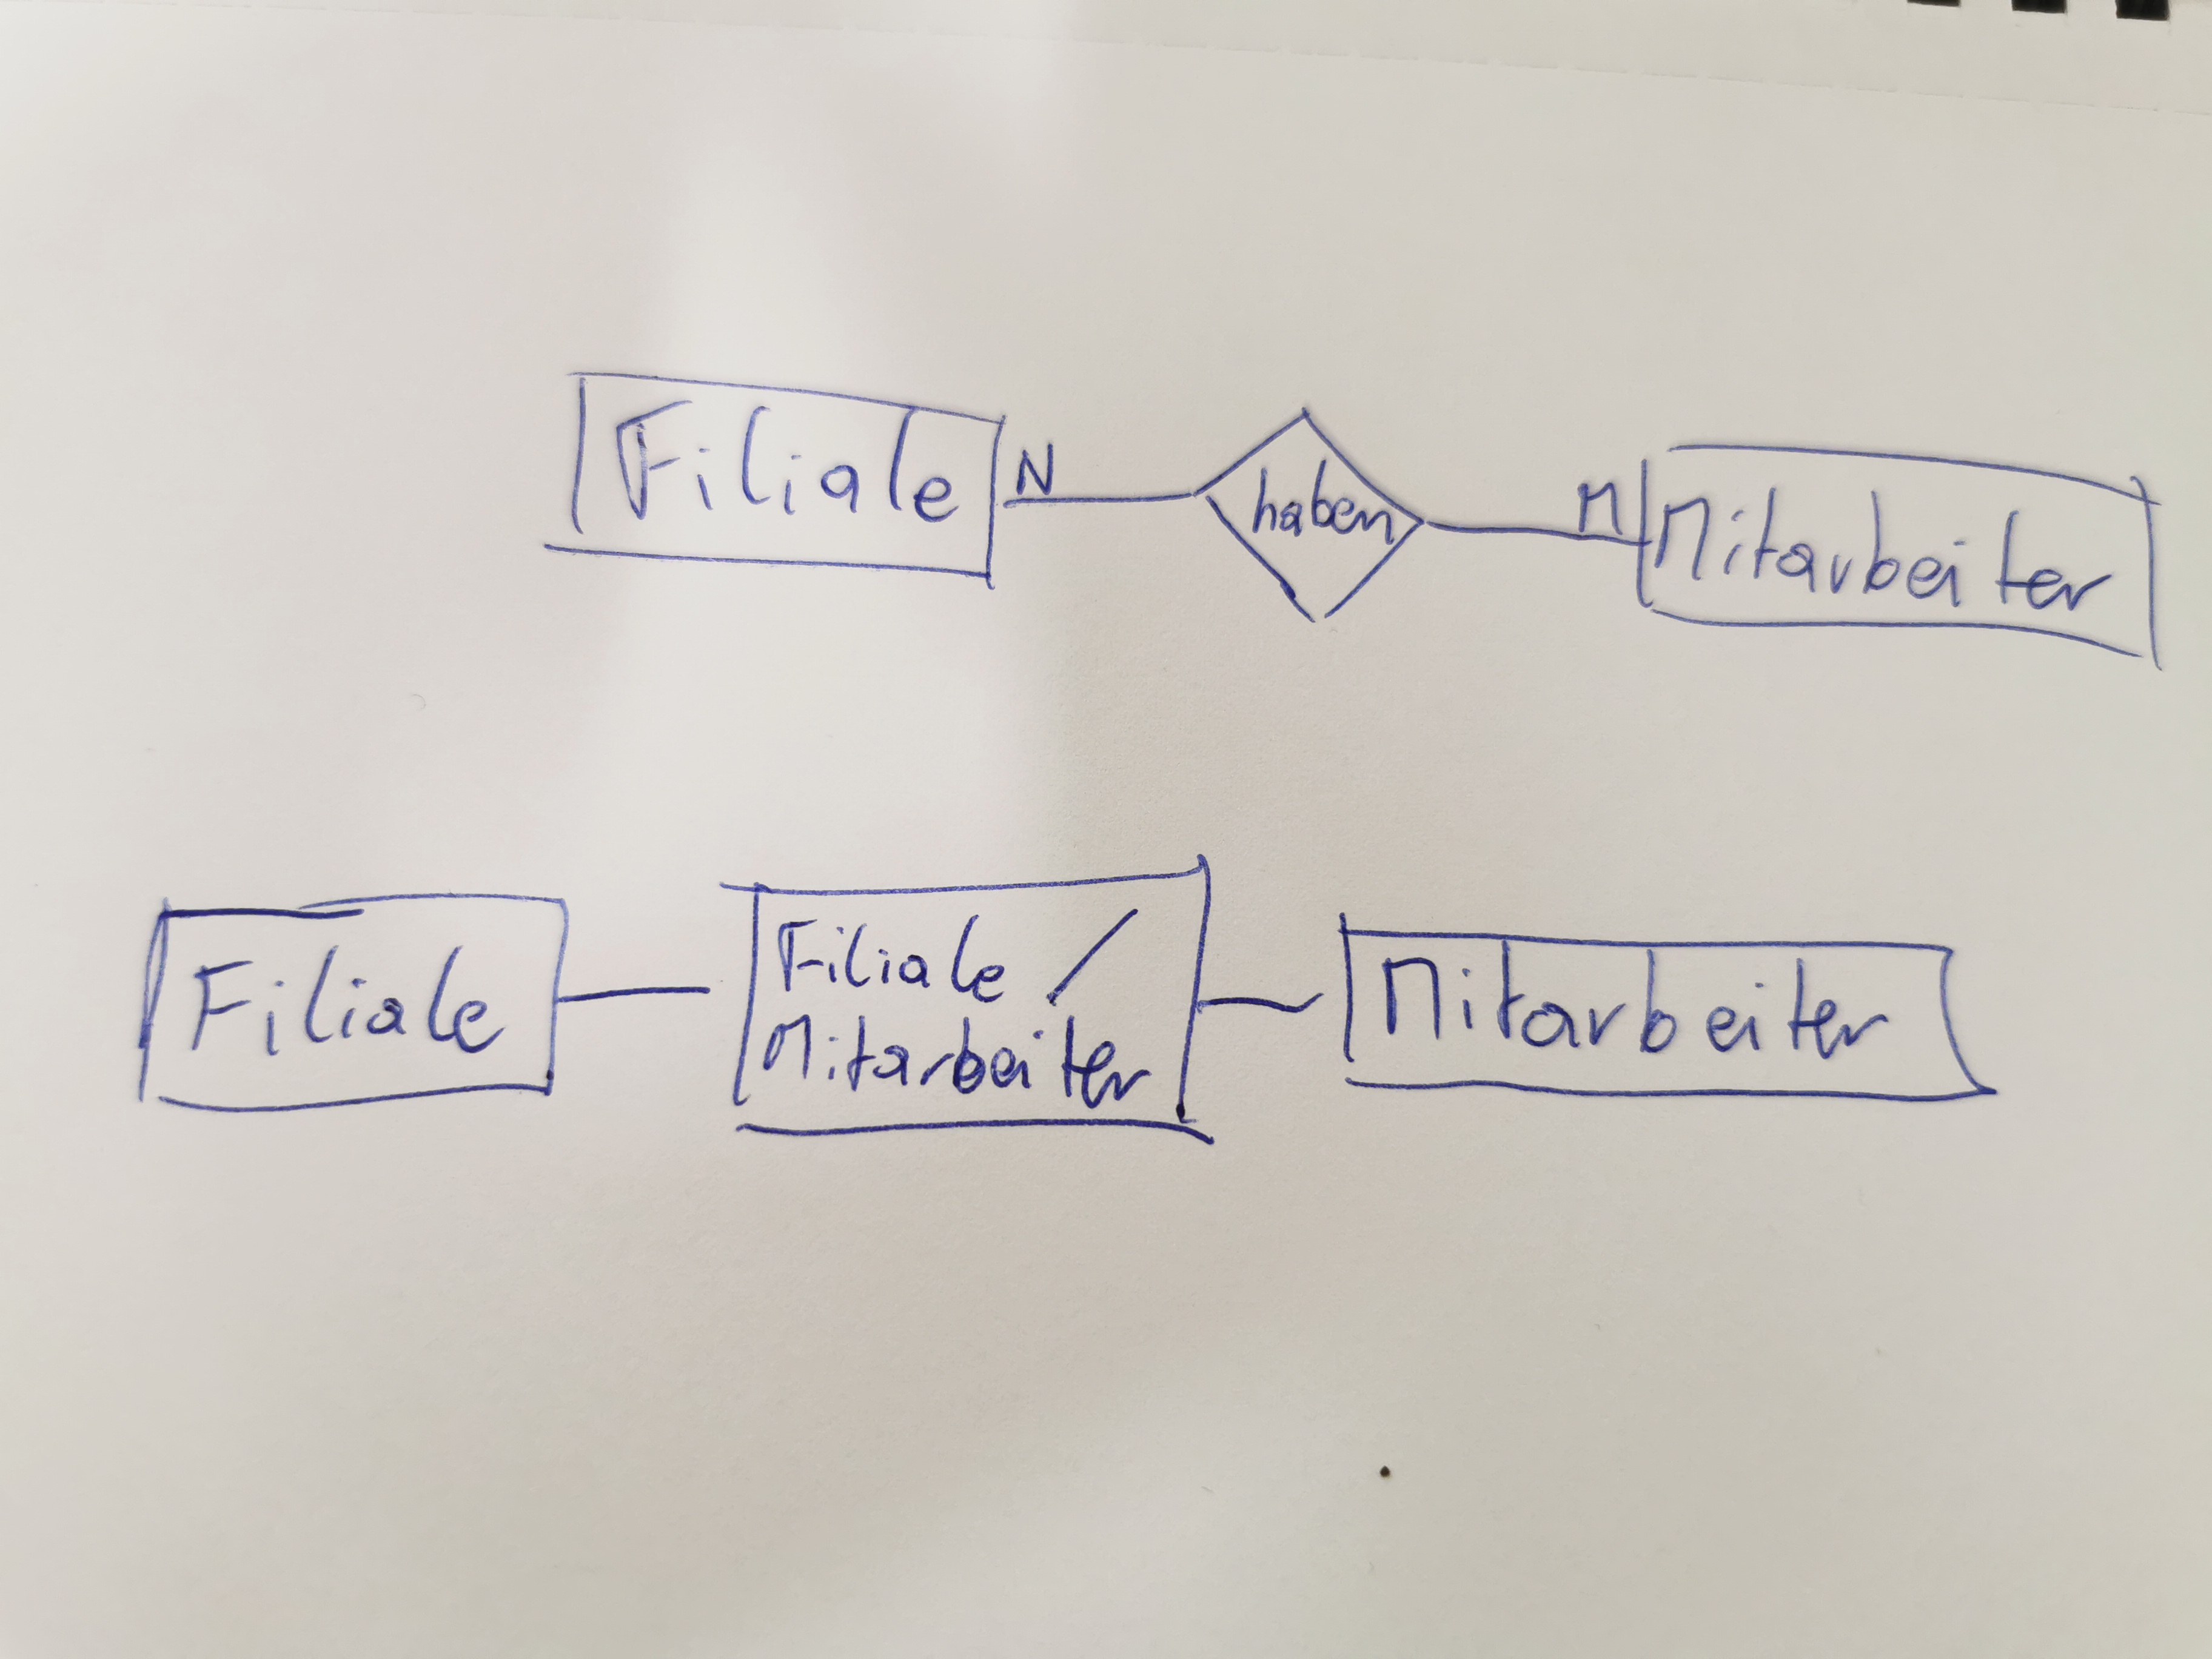 Filiale N haben M Mitarbeiter
Filiale
Filiale /
Mitarbeiter
Mitarbeiter